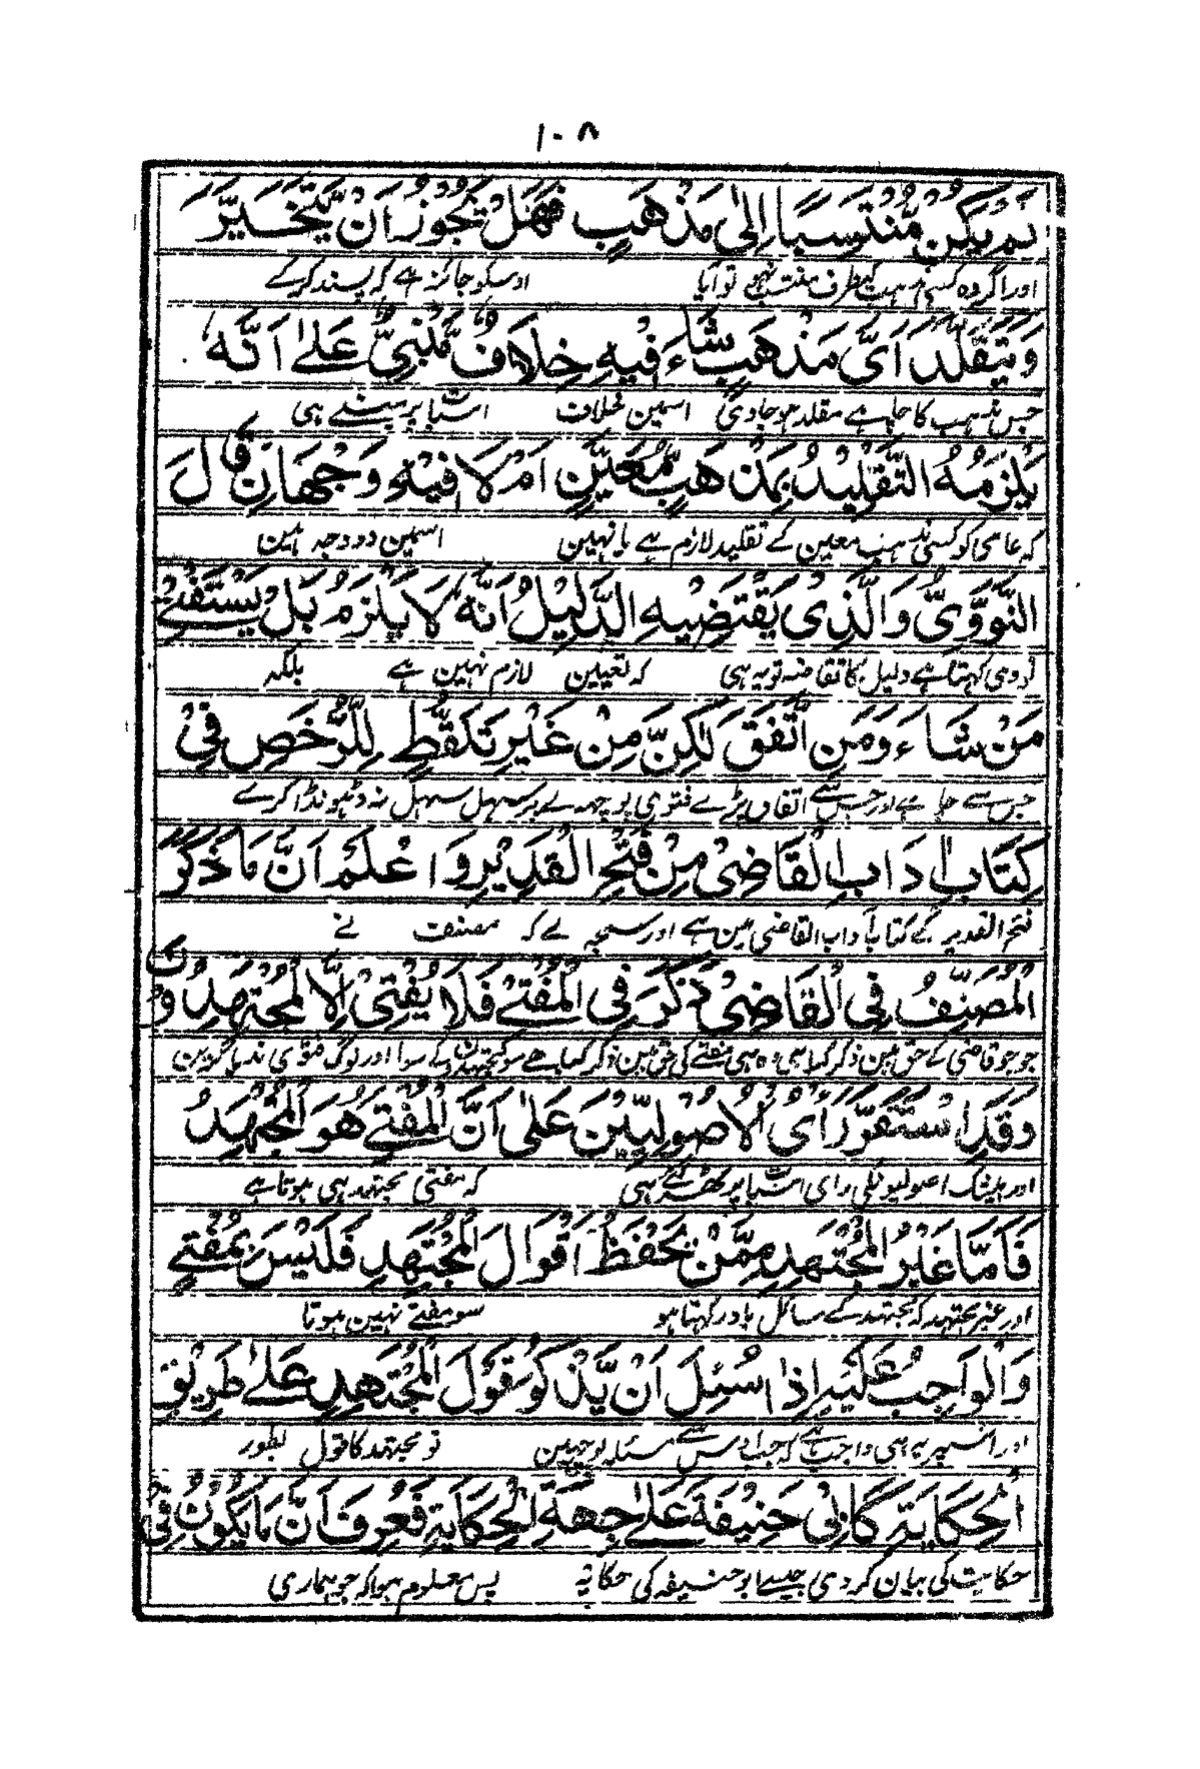 ١٠٨
لَمْ يَكُنْ مُّنْتَسِبًا اِلٰى مَذْهَبٍ فَهَلْ يَجُوْزُ اَنْ يَّتَخَيَّرَ
اور اگر وہ کسی مذہب کیطرف منتسب نہو تو آیا اوسکو جائز ہے کہ پسند کر کے
وَيَتَقَلَّدَ اَىَّ مَذْهَبٍ شَاءَ فِيْهِ خِلَافٌ مَّبْنِىٌّ عَلٰى اَنَّهٗ
جس مذہب کا چاہے مقلد ہو جاوی اسمین خلاف اس بات پر مبنے ہی
يَلْزَمُهُ التَّقْلِيْدُ بِمَذْهَبٍ مُّعَيَّنٍ اَمْ لَا فِيْهِ وَجْهَانِ قَالَ
کہ عامی کو کسی مذہب معین کے تقلید لازم ہے یا نہین اسمین دو وجہ ہین
النَّوَوِىُّ وَالَّذِىْ يَقْتَضِيْهِ الدَّلِيْلُ اَنَّهٗ لَا يَلْزَمُ بَلْ يَسْتَفْتِىْ
نووی کہتا ہے دلیل کا تقاضہ تو یہ ہی کہ تعیین لازم نہین ہے بلکہ
مَنْ شَاءَ وَمَنِ اتَّفَقَ لٰكِنْ مِنْ غَيْرِ تَلَقُّطٍ لِلرُّخَصِ فِىْ
جس سے چاہے اور جس سے اتفاق پڑے فتوی پوچھ لے پر سہل سہل نہ ڈہونڈا کرے
كِتَابِ اٰدَابِ الْقَاضِىْ مِنْ فَتْحِ الْقَدِيْرِ وَاعْلَمْ اَنَّ مَا ذَكَرَ
فتح القدیر کے کتاب آداب القاضی مین ہے اور سمجہ لے کہ مصنف نے
الْمُصَنِّفُ فِى الْقَاضِىْ ذَكَرَ فِى الْمُفْتِىْ فَلَا يُفْتِىْ اِلَّا الْمُجْتَهِدُوْنَ
جو جو قاضی کے حق مین ذکر کیا ہی وہ ہی مفتے کی حق مین ذکر کیا ہے سو مجتہدون کے سوا اور لوگ فتوی ندیا کرین
وَقَدِ اسْتَقَرَّ رَاْىُ الْاُصُوْلِيِّيْنَ عَلٰى اَنَّ الْمُفْتِىْ هُوَ الْمُجْتَهِدُ
اور بیشک اصولیونکی رای اس بات پر ٹھہر گئے ہی کہ مفتی مجتہد ہی ہوتا ہے
فَاَمَّا غَيْرُ الْمُجْتَهِدِ مِمَّنْ يَّحْفَظُ اَقْوَالَ الْمُجْتَهِدِ فَلَيْسَ بِمُفْتٍ
اور غیر مجتہد کہ مجتہد کے مسائل یاد رکہتا ہو سو مفتے نہین ہوتا
وَالْوَاجِبُ عَلَيْهِ اِذَا سُئِلَ اَنْ يَّذْكُرَ قَوْلَ الْمُجْتَهِدِ عَلٰى طَرِيْقِ
اور اسپر یہ ہی واجب ہے کہ جب اوس سے مسئلہ پوچہین تو مجتہد کا قول بطور
الْحِكَايَةِ كَاَبِىْ حَنِيْفَةَ عَلٰى جِهَةِ الْحِكَايَةِ فَعُرِفَ اَنَّ مَا يَكُوْنُ فِىْ
حکایت کی بیان کر دی جیسے ابو حنیفہ کی حکایۃ پس معلوم ہوا کہ جو ہماری